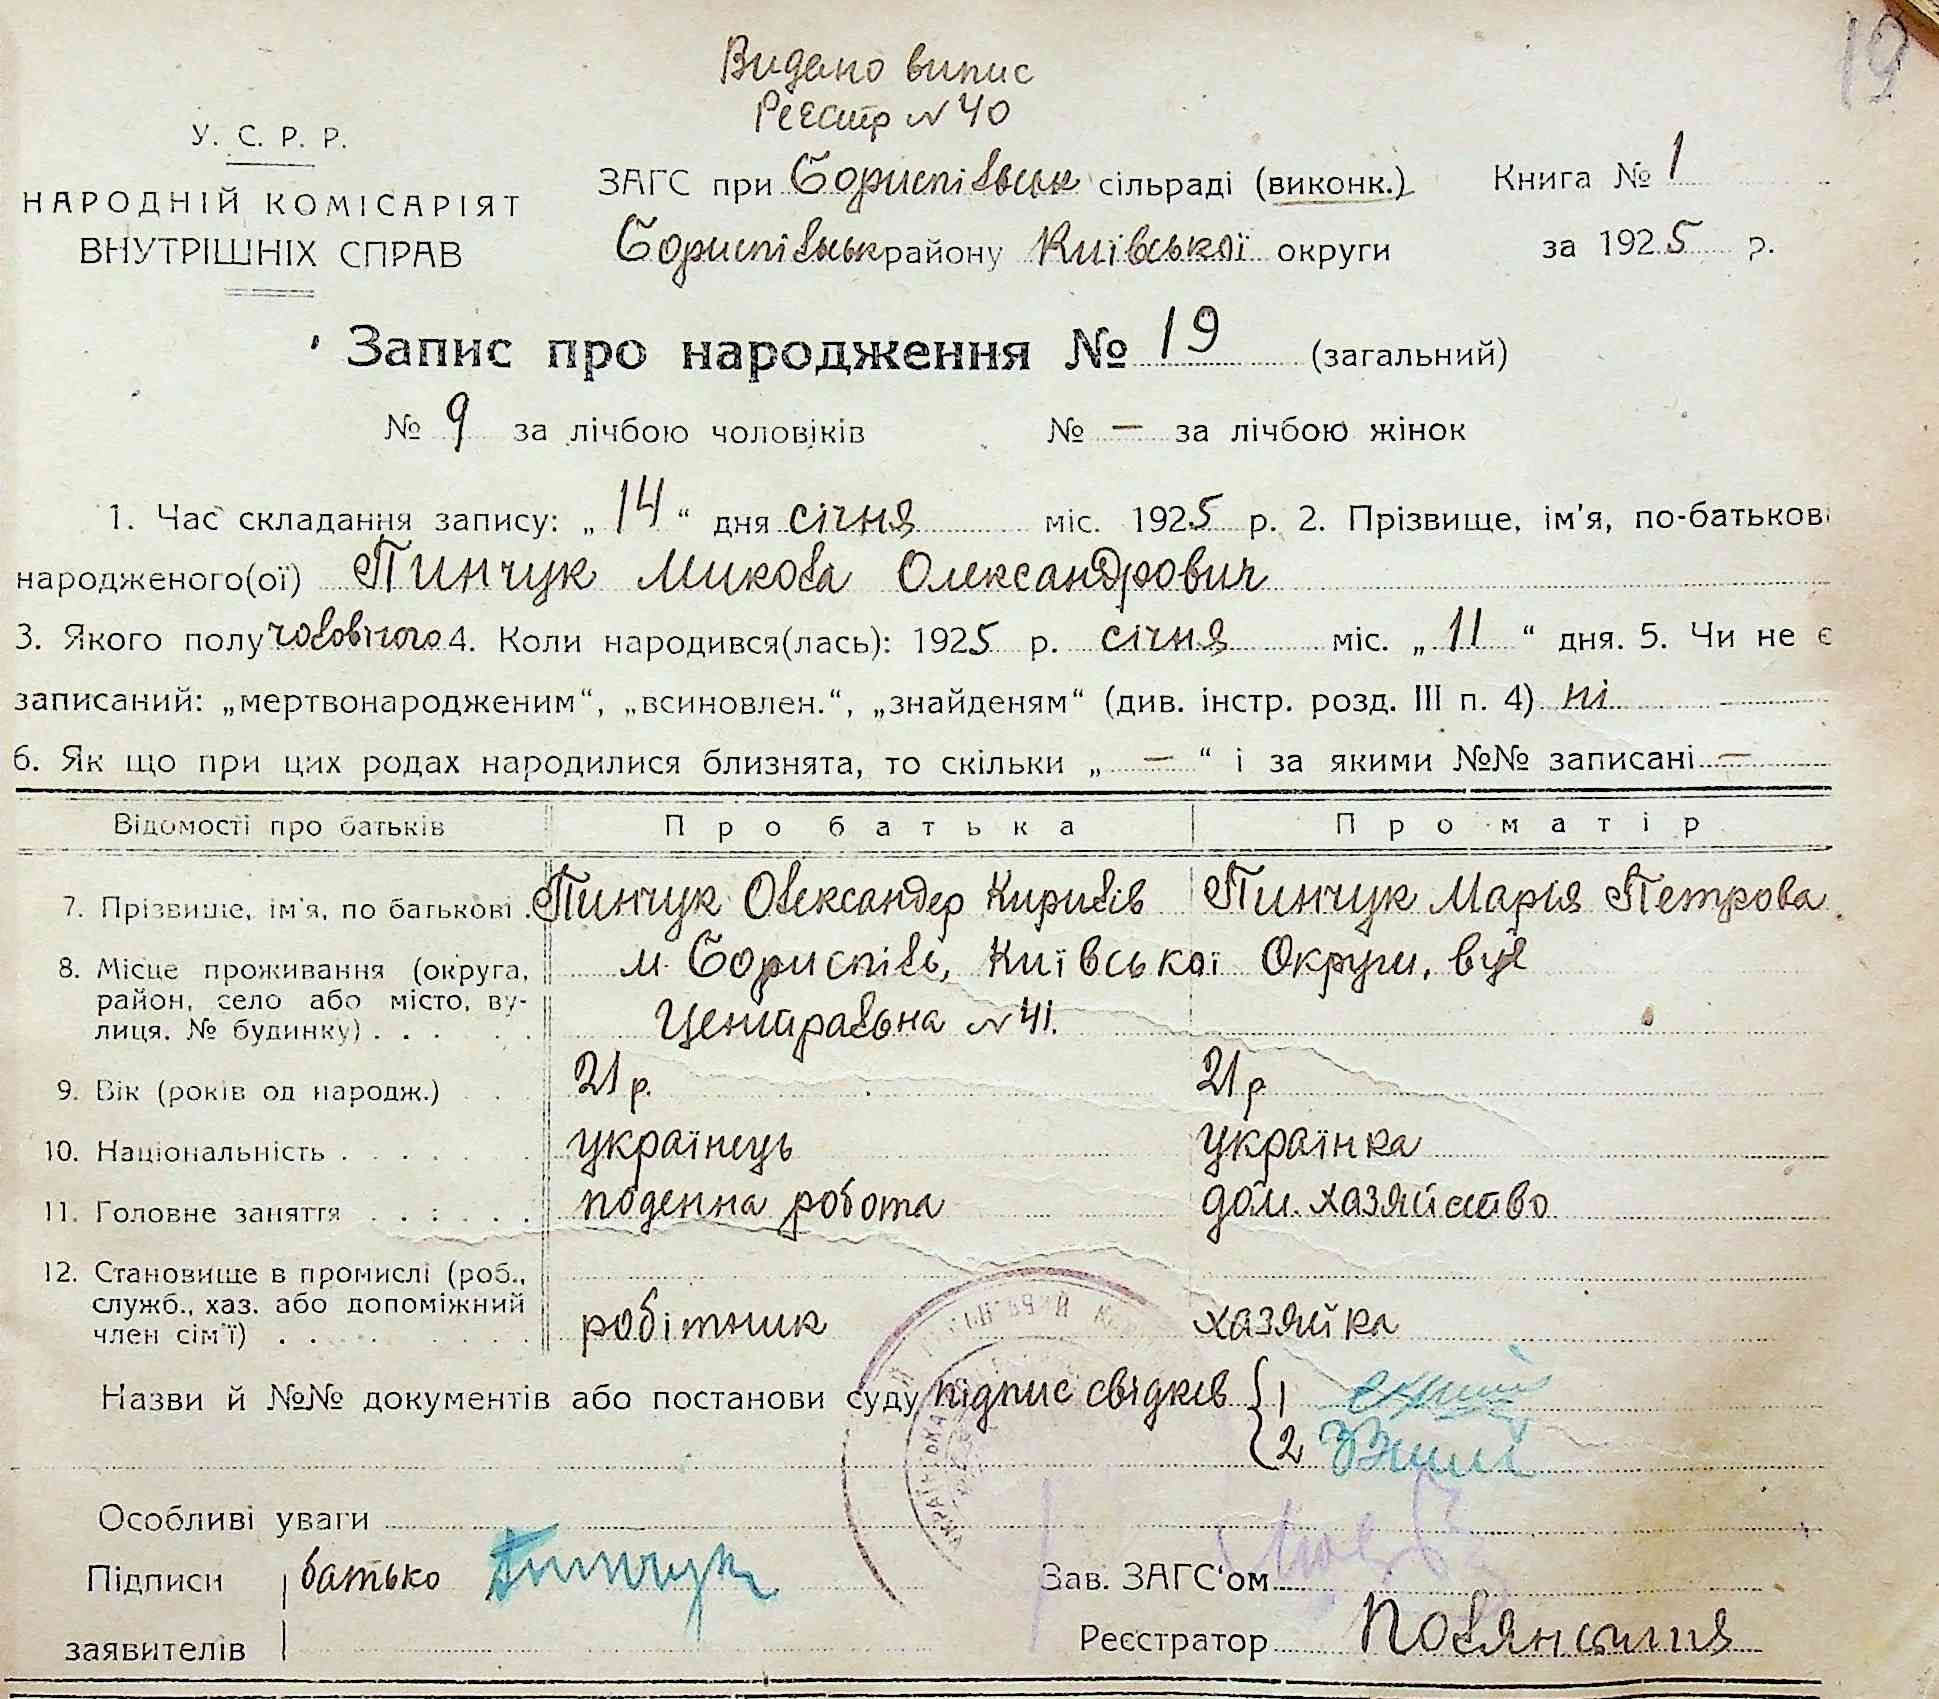 19
Видано випис
Реєстр N 40
У. С. Р. Р.
НАРОДНІЙ КОМІСАРІЯТ
ВНУТРІШНІХ СПРАВ
ЗАГС при Бориспільськ сільраді (виконк.)
Бориспільськ району Київської округи
Книга № 1
за 1925 р.
Запис про народження № 19 (загальний)
№ 9 за лічбою чоловіків № — за лічбою жінок
1. Час складання запису: „14“ дня січня міс. 1925 р. 2. Прізвище, ім'я, по-батькові
народженого(ої) Пинчук Микола Олександрович
3. Якого полу чоловічого 4. Коли народився(лась): 1925 р. січня міс. „11“ дня. 5. Чи не є
записаний: „мертвонародженим“, „всиновлен.“, „знайденям“ (див. інстр. розд. III п. 4) ні
6. Як що при цих родах народилися близнята, то скільки „ — “ і за якими №№ записані —
Відомості про батьків Про батька Про матір
7. Прізвище, ім'я, по батькові . Пинчук Олександер Кирилів Пинчук Марія Петрова
8. Місце проживання (округа, район, село або місто, вулиця, № будинку) . . . м. Бориспіль, Київської Округи, вул
Центральна N 41.
9. Вік (років од народж.) . . 21 р. 21 р
10. Національність . . . . . українець українка
11. Головне заняття . . . . . . поденна робота дом. хазяйство
12. Становище в промислі (роб., служб., хаз. або допоміжний член сім'ї) . . робітник хазяйка
Назви й №№ документів або постанови суду підпис свідків { 1
2
Особливі уваги
Підписи заявителів батько Пинчук
Зав. ЗАГС'ом
Реєстратор Полянська